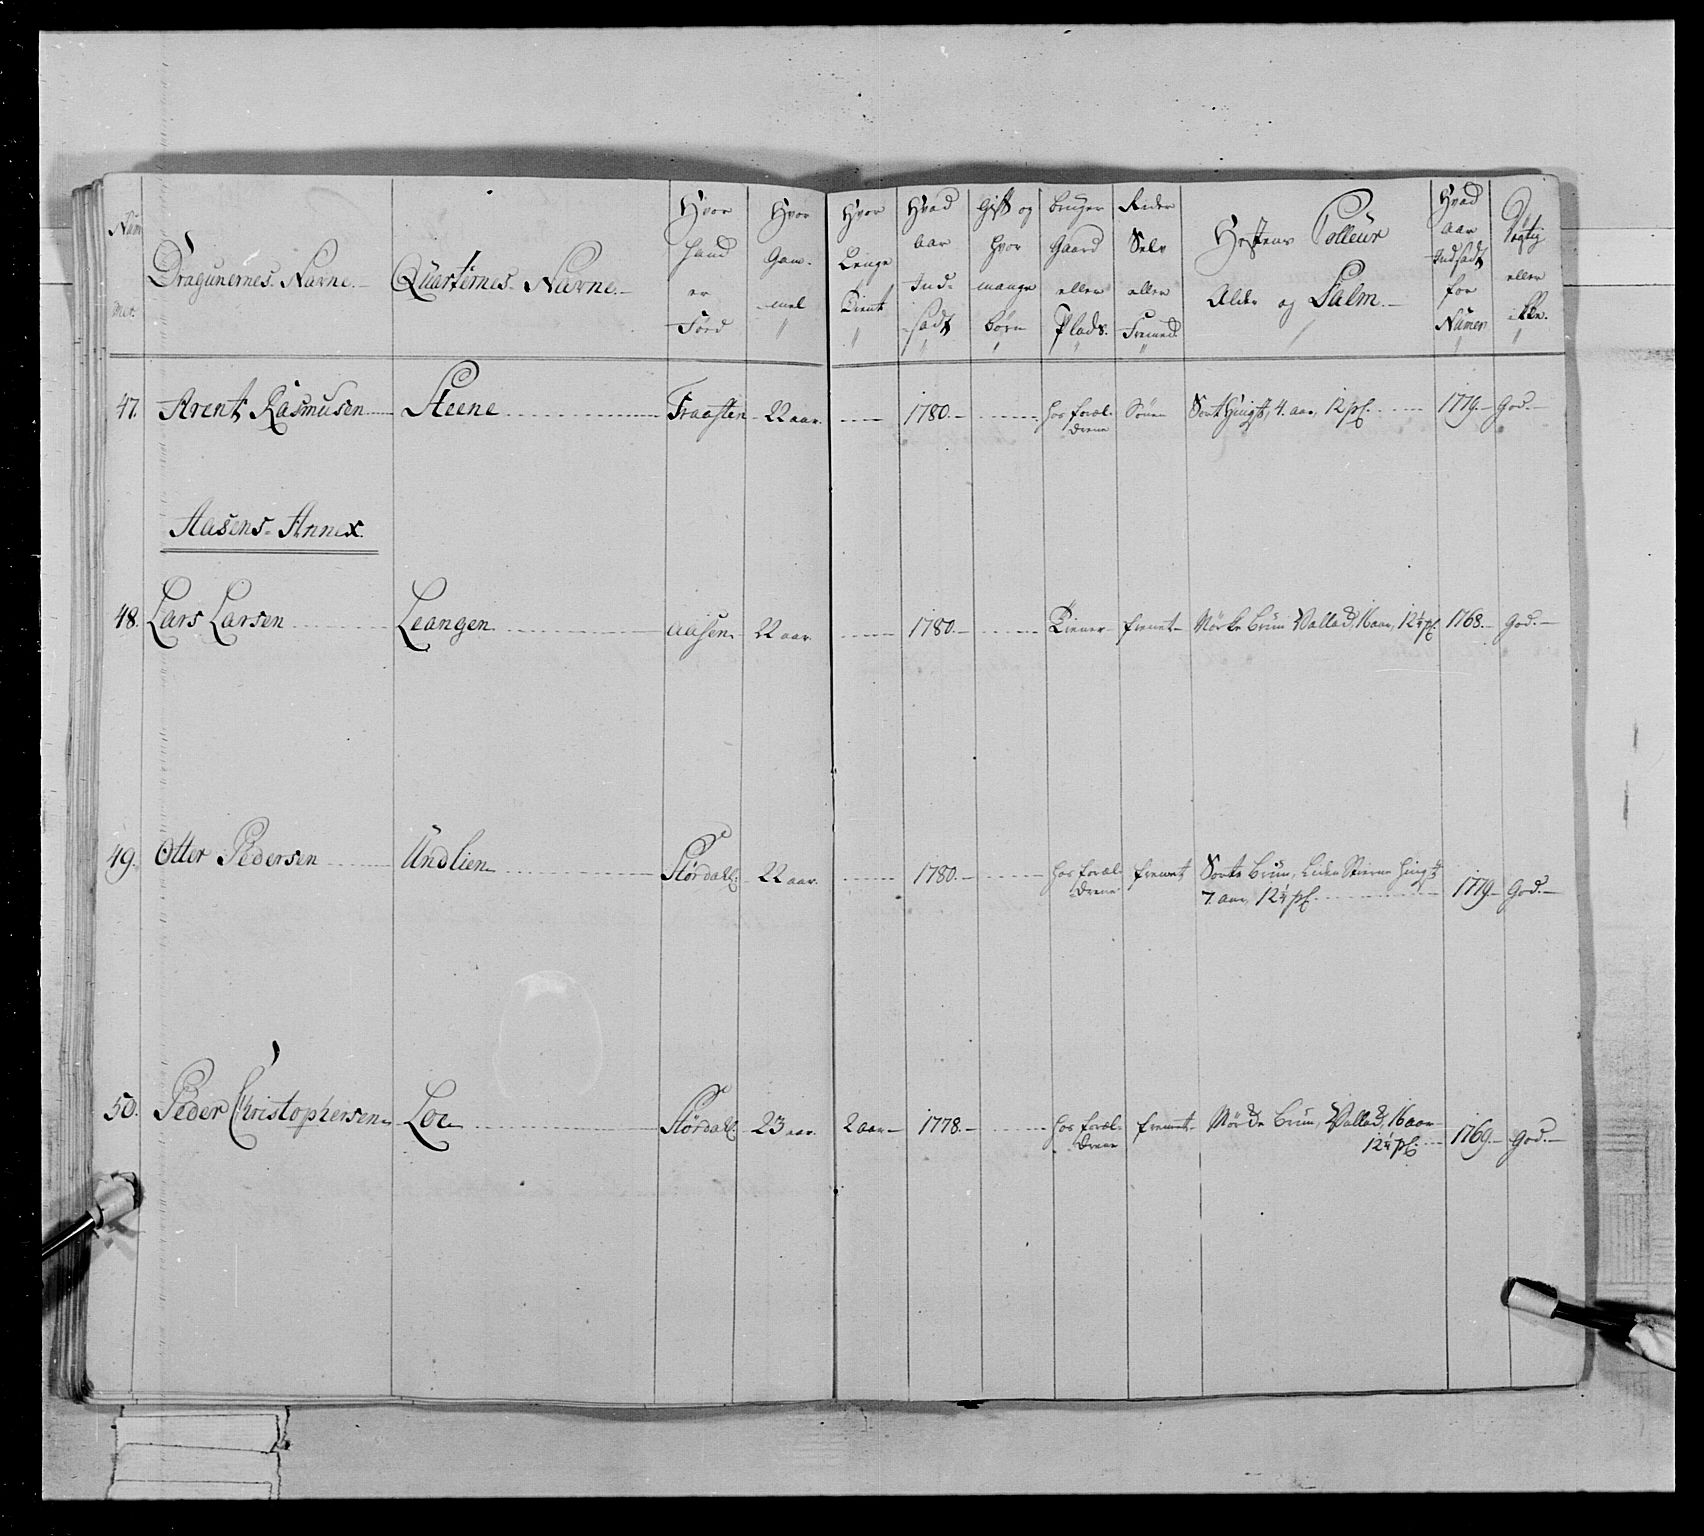 Num
mer.
Dragunernes Navne.
Quarternes Navne.
Hvor
hand
er
Fød
Hvor
Gam-
mel
Hvor
Lenge
Tient
Hvad
aar
Ind-
sadt
Gift og
hvor
mange
børn
bruger
Gaard
eller
Plads.
Rider
Selv
eller
Fremed.
Hestens Colleur
Alder og Palm.
Hvad
aar
Indsadt
for
Numer
Dygtig
eller
ikke.
47. Arent Rasmusen Steene Fraasten 22 aar. 1780. hos foræl- Sønn Sort hingst, 4. aar, 12 pf. 1779. God.
drene
Aasens Annex.
48. Lars Larsen Leangen Aasen 22 aar 1780. Tiener fremet Mörke Brun Vallad, 16 aar, 12¼ pf. 1768. God.
49. Otter Pedersen Undlien Størdall. 22 aar. 1780. hos foræl- fremet Sorte Brun, Liden Stierne hingst
drene 7. aar, 12¼ pf. 1779. God.
50. Peder Christophersen Loe Størdall. 23 aar. 2 aar 1778. hos foræl- fremet Mörke Brun, Vallad, 16 aar
drene 12¼ pf. 1769. God.